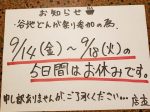 お知らせ
谷地どんが祭り参加の為、
9/14(金)〜9/18(火)の
5日間はお休みです。
申し訳ありませんがご了承ください…
店主